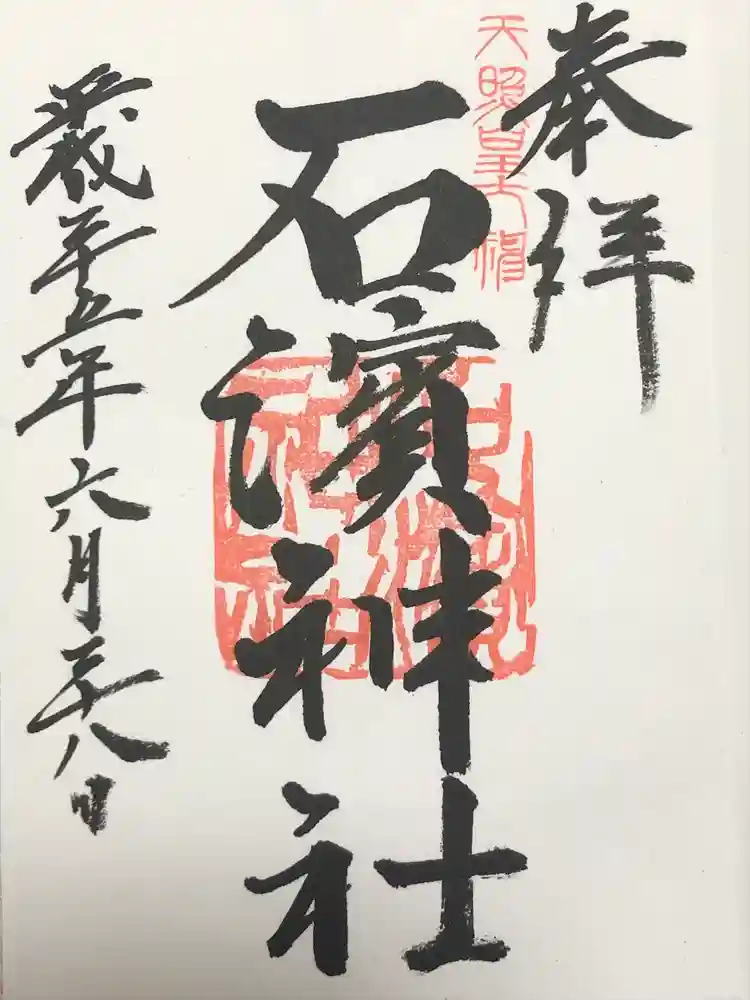 奉拝
天照皇大神
石濱神社
平成二十五年六月二十八日